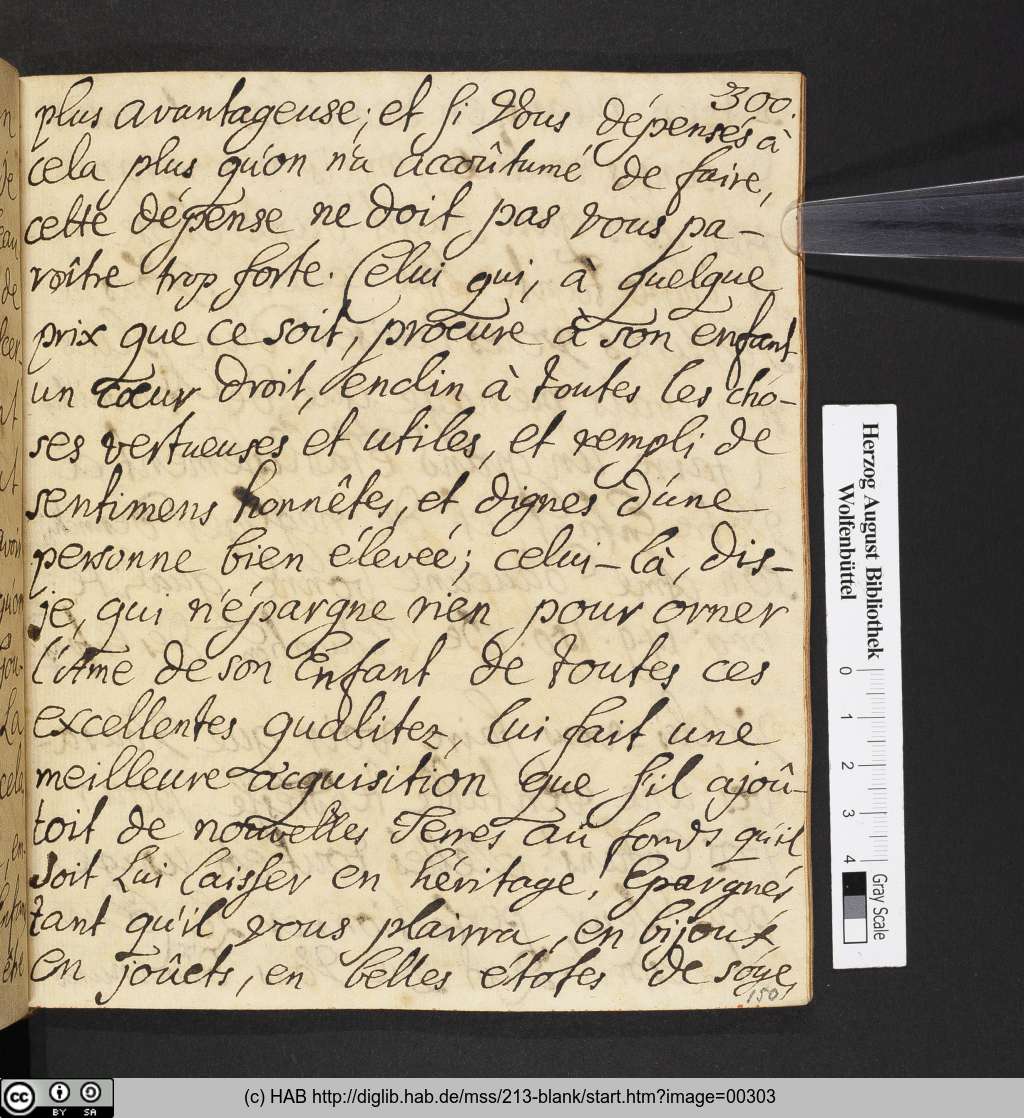 300.
plus avantageuse; et si Vous dépensés à
cela plus qu'on n'a accoûtumé de faire,
cette dépense ne doit pas vous pa-
roître trop forte. Celui qui, à quelque
prix que ce soit, procure à son enfant
un cœur droit, enclin à toutes les cho-
ses vertueuses et utiles, et rempli de
sentimens honnêtes, et dignes d'une
personne bien élevée; celui-là, dis-
je, qui n'épargne rien pour orner
l'Ame de son Enfant de toutes ces
excellentes qualitez, lui fait une
meilleure acquisition que s'il ajoû-
toit de nouvelles Terres au fonds qu'il
doit Lui laisser en héritage. Epargnés
tant qu'il vous plairra, en bijoux,
en joûets, en belles étofes de soye,
150
Herzog August Bibliothek
Wolfenbüttel
0 1 2 3 4
Gray Scale
cc BY SA
(c) HAB http://diglib.hab.de/mss/213-blank/start.htm?image=00303